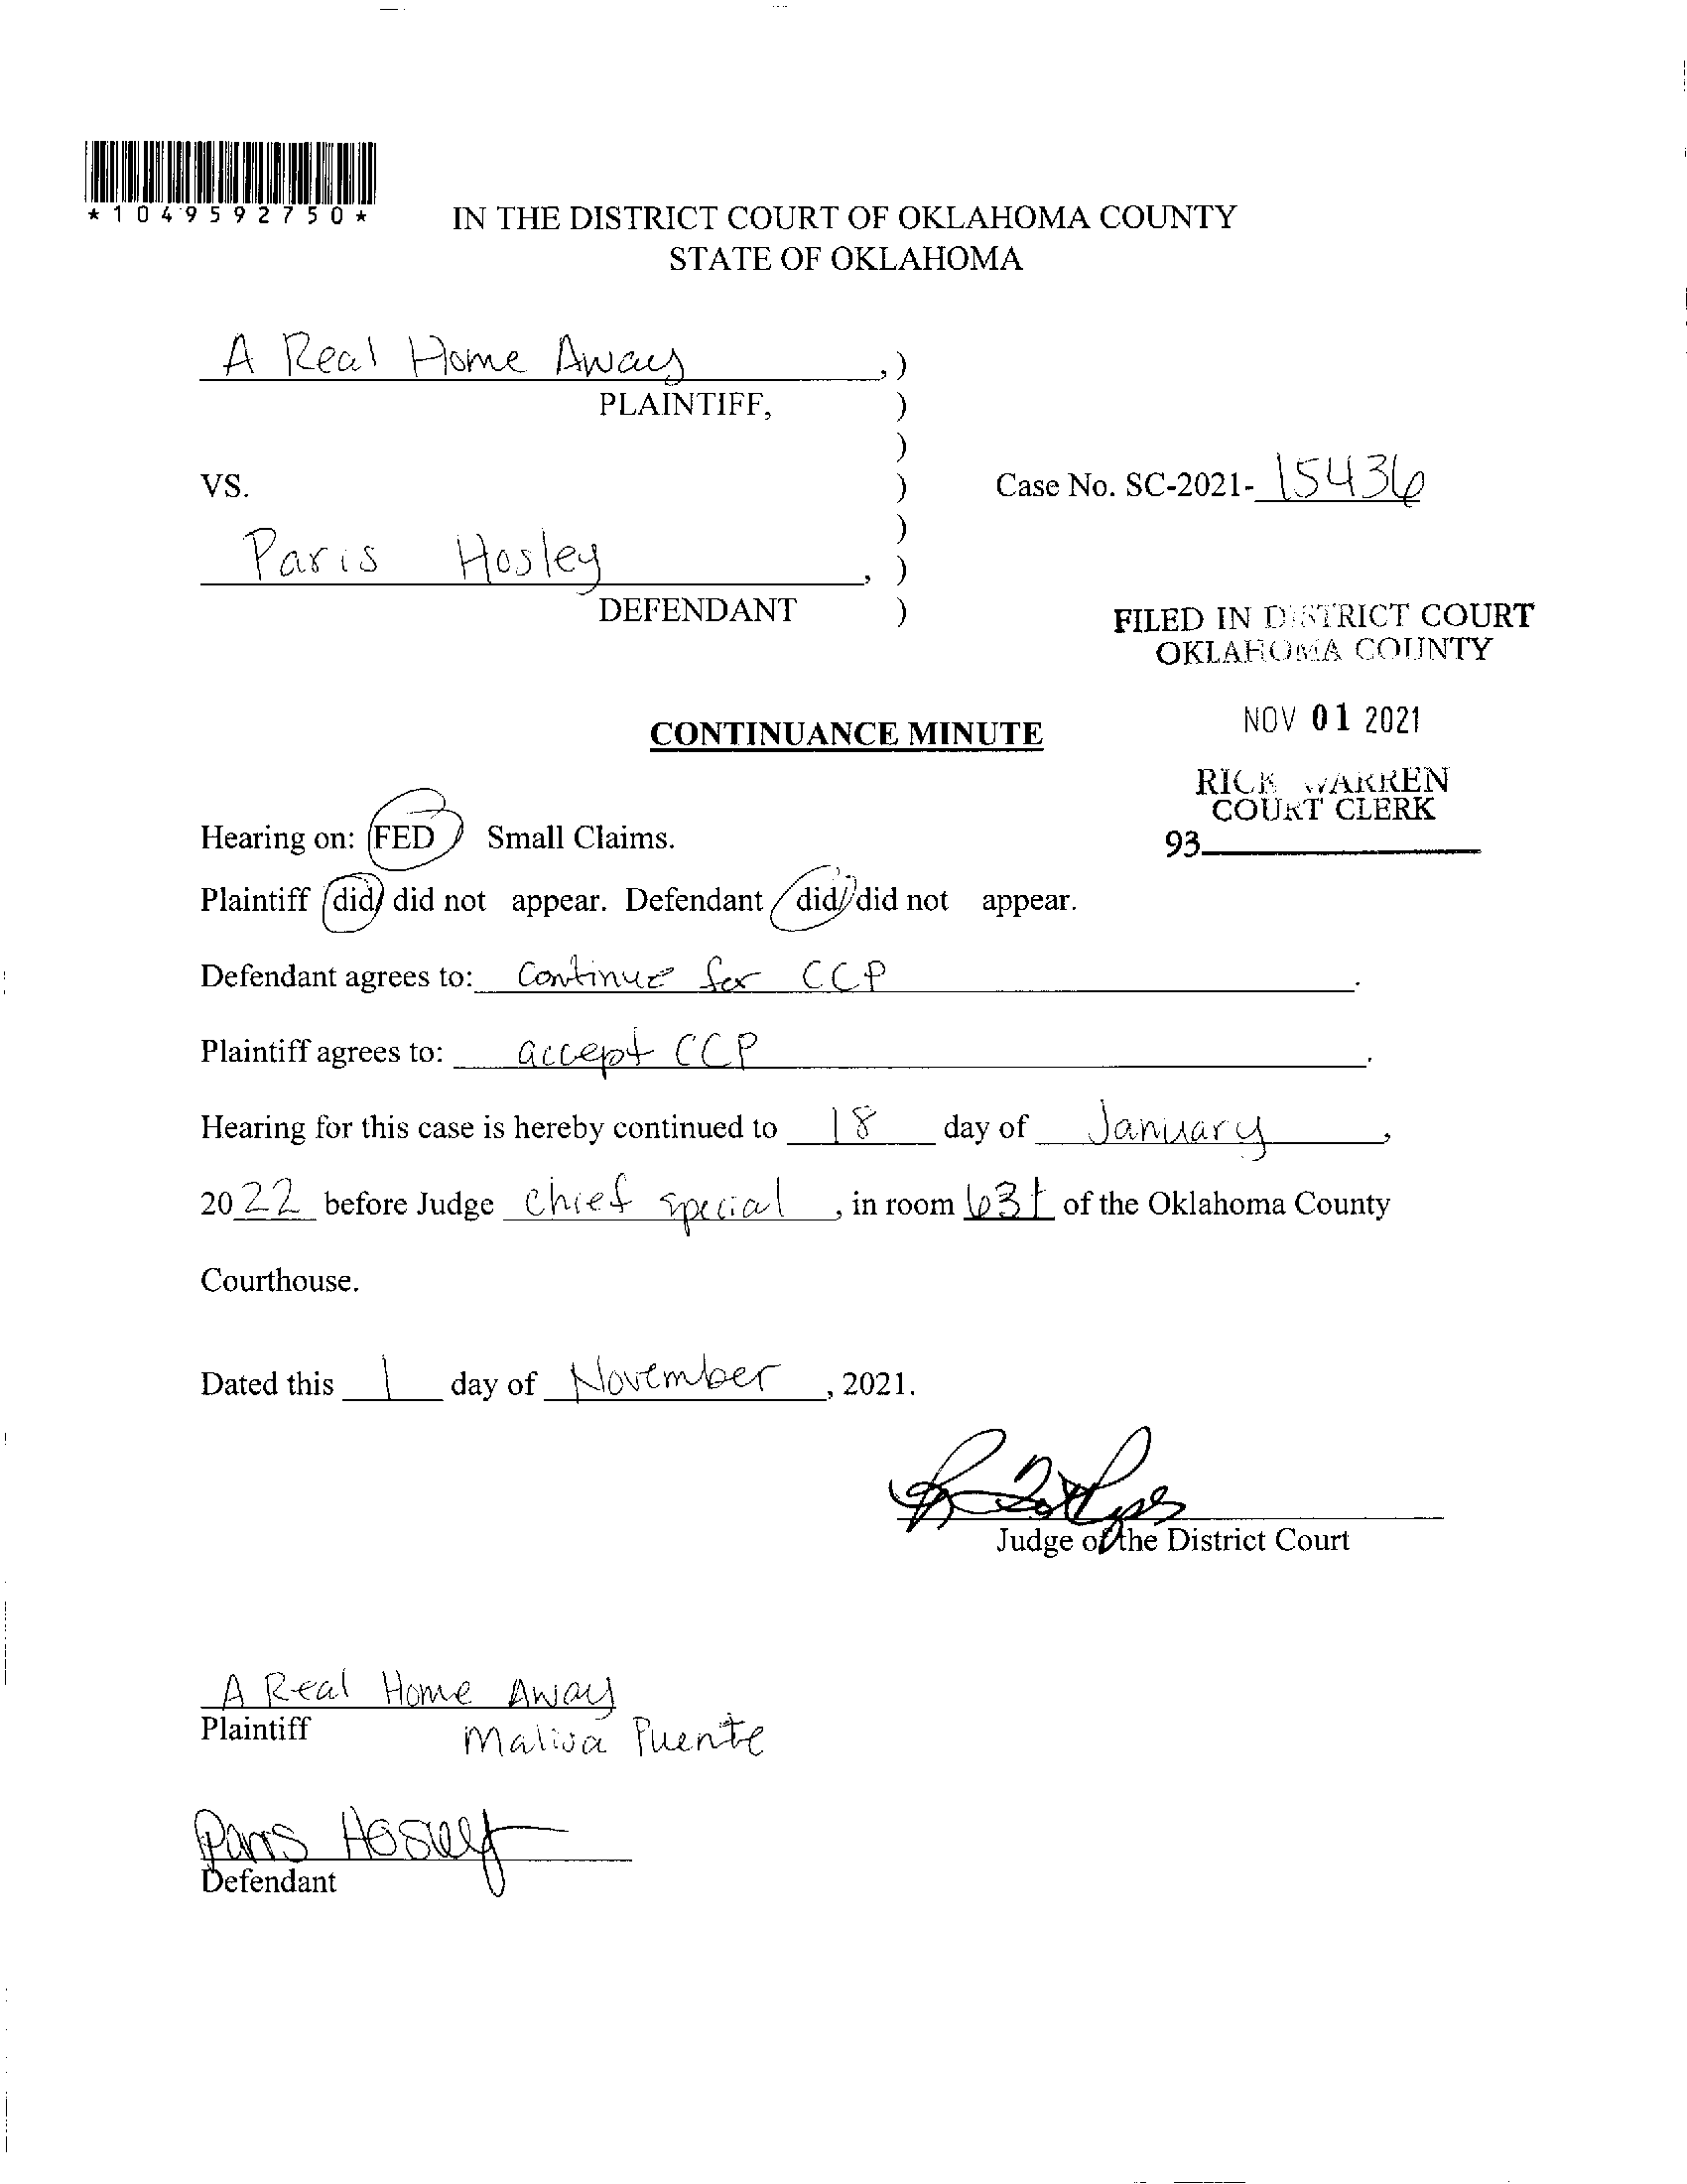 *1049592750*
IN THE DISTRICT COURT OF OKLAHOMA COUNTY
STATE OF OKLAHOMA
A Real Home Away ,)
PLAINTIFF, )
)
VS. ) Case No. SC-2021- 15436
)
Paris Hosley , )
DEFENDANT )
FILED IN DISTRICT COURT
OKLAHOMA COUNTY
NOV 01 2021
CONTINUANCE MINUTE
RICK WARREN
COURT CLERK
93
Hearing on: FED Small Claims.
Plaintiff did/ did not appear. Defendant did/ did not appear.
Defendant agrees to: Continue for CCP .
Plaintiff agrees to: accept CCP .
Hearing for this case is hereby continued to 18 day of January ,
2022 before Judge chief special , in room of the Oklahoma County
Courthouse.
Dated this 1 day of November , 2021.
Judge of the District Court
A Real Home Away
Plaintiff
Puente
Paris Hosley
Defendant